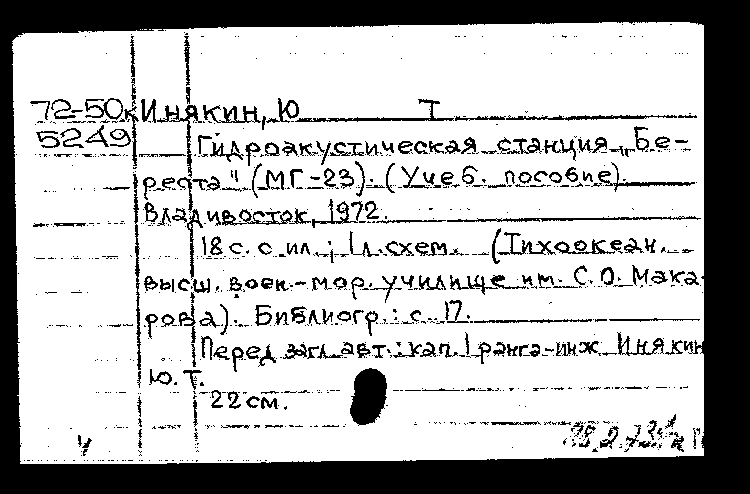 72-50к Инякин, Ю Т
5249 Гидроакустическая станция „Бе-
реста" (МГ-23). (Учеб. пособие).
Владивосток, 1972.
18 с. с ил.; 1 л. схем. (Тихоокеан.
высш. воен.-мор. училище им. С. О. Мака-
рова). Библиогр.: с. 17.
Перед загл. авт.: кап. 1 ранга-инж Инякин
Ю. Т.
22 см.